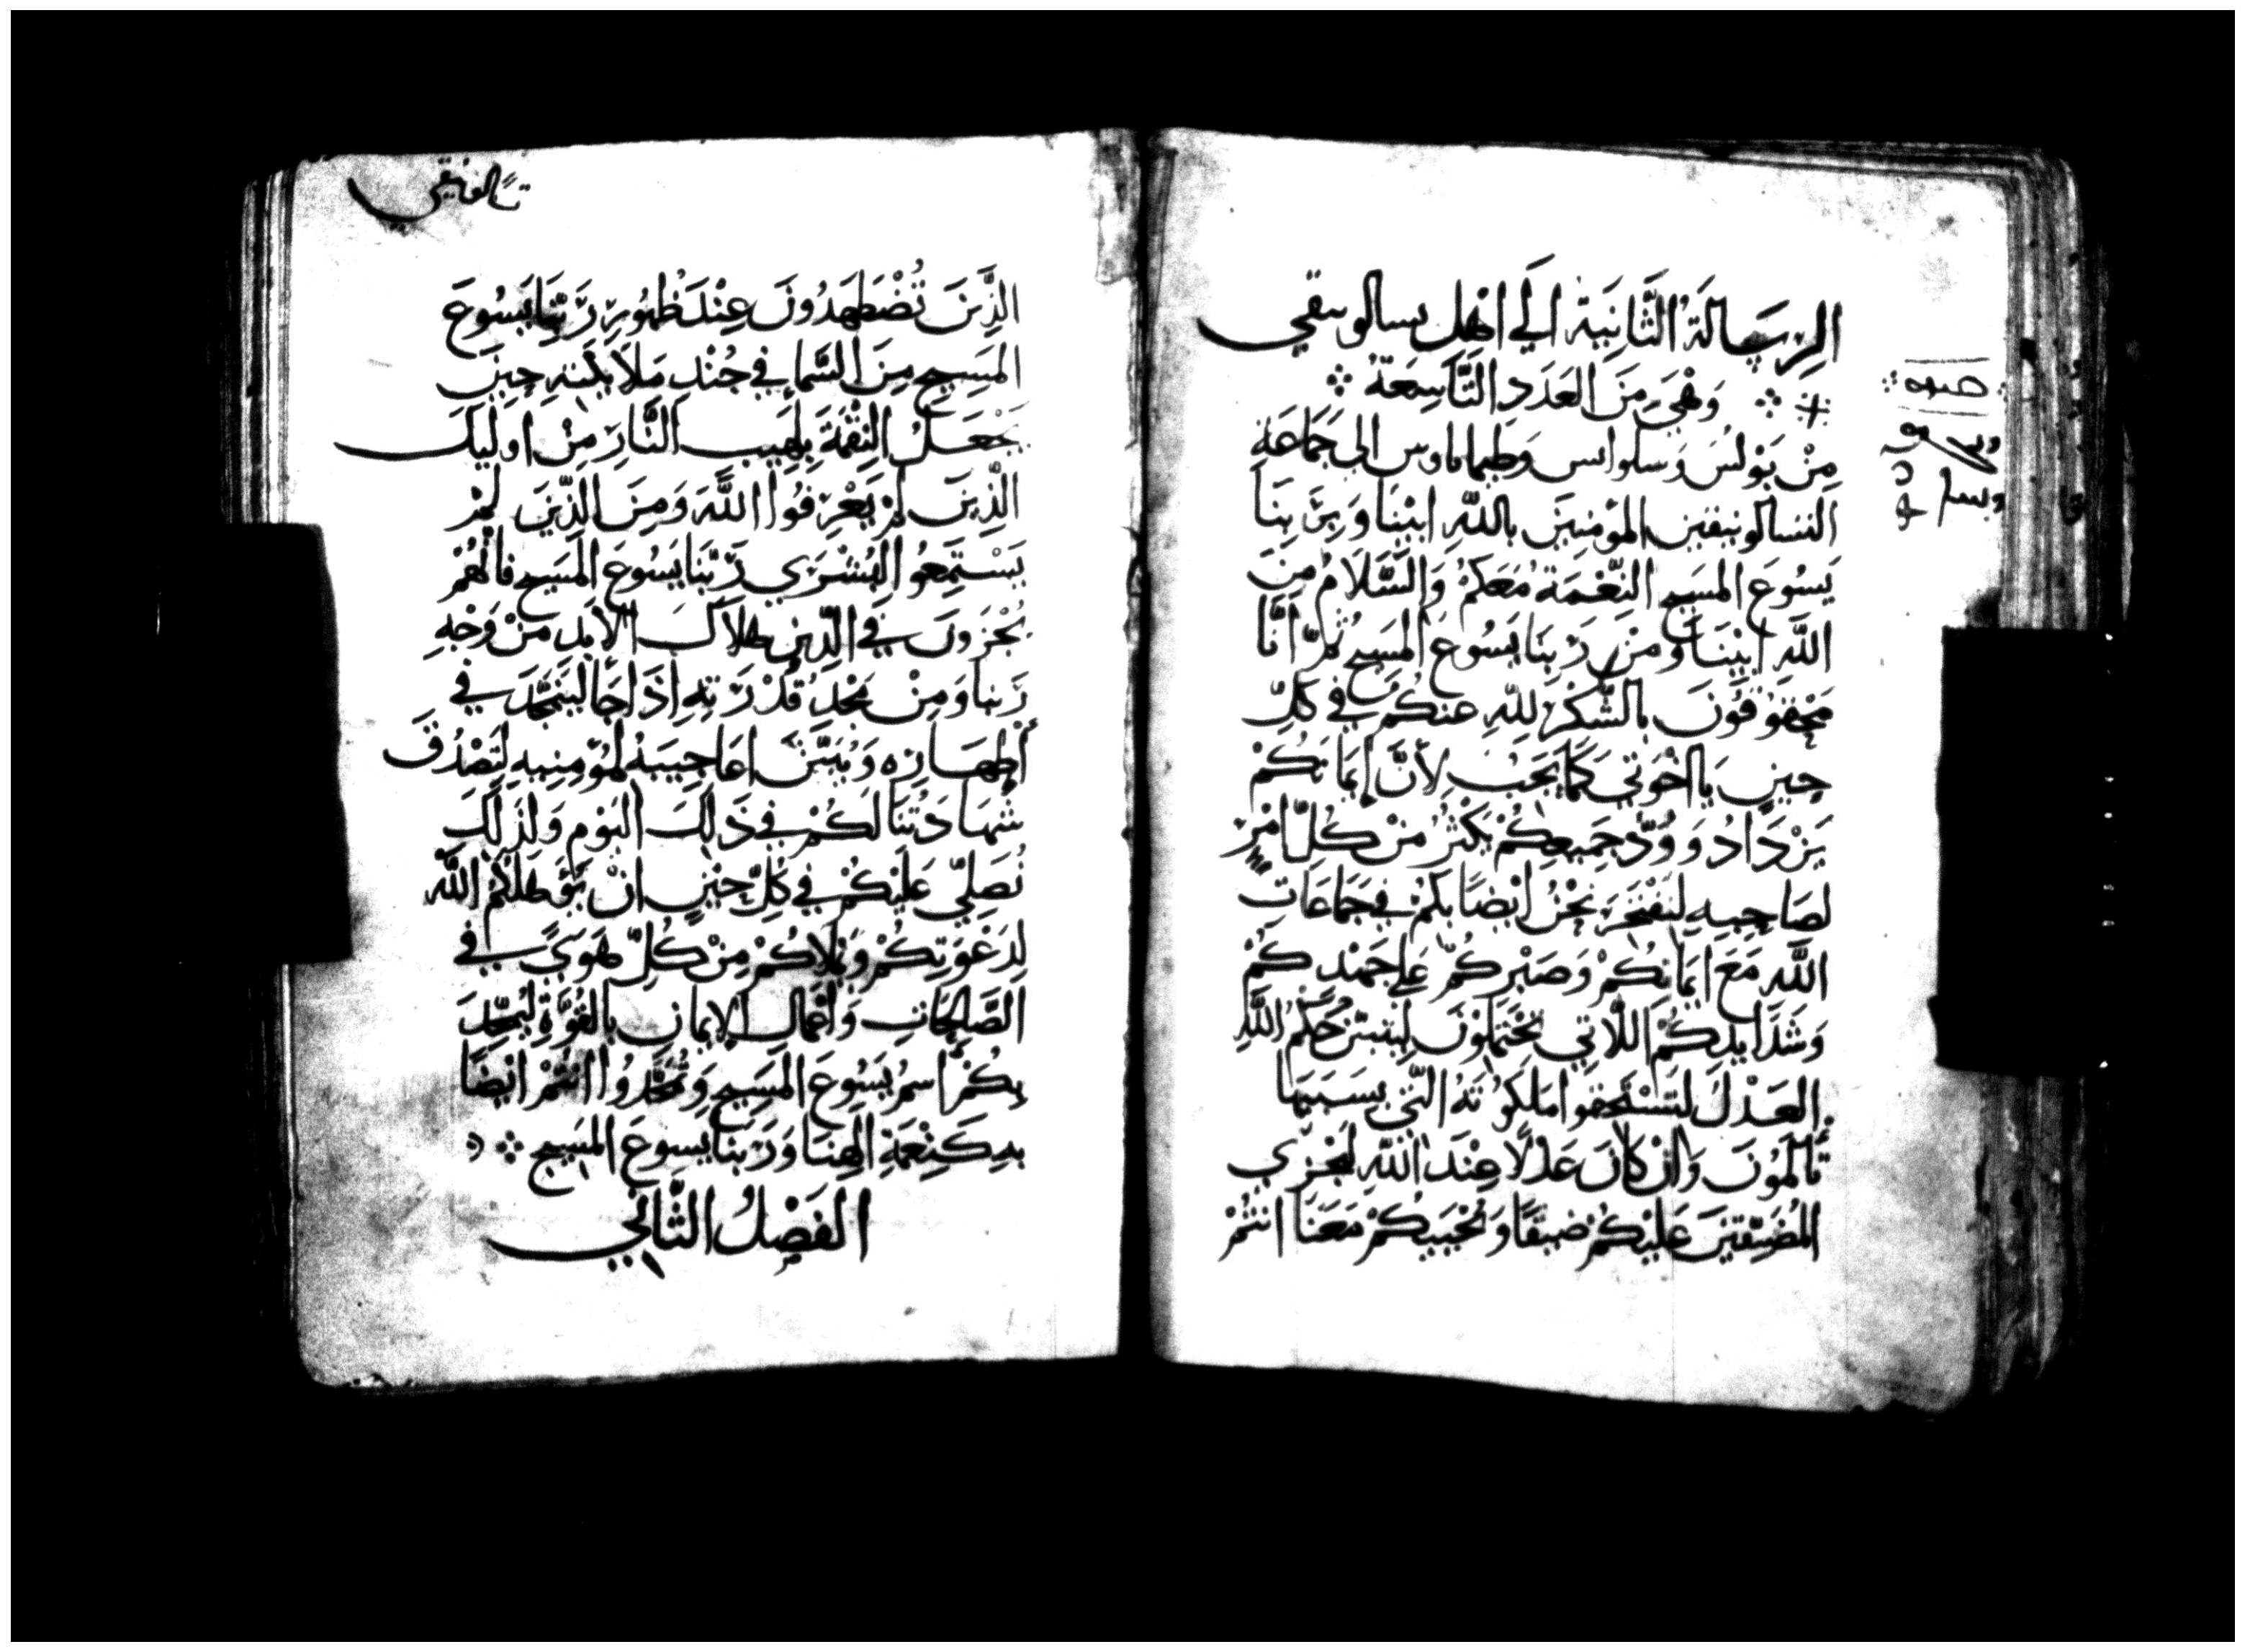 الرِسَالَةُ الثَّانِيَة الَي اهْلِ تسالونيقي
وَهْيَ مِنَ العَدَدِ التَّاسِعَةُ
مِنْ بَوْلسَ وَسلوانس وَطيماتاوس الي جَمَاعَةِ
التسالونيقيين المؤمِنِينَ باللهِ ابْيْنَا وَرَبَّنِنَا
يَسُوعَ المسَيح النِّعْمَةُ مَعَكمُ وَالسَّلَامُ مِنَ
اللهِ ابْيَنا وَمنْ رَبنَا يَسُوع المسَيح ثمّ انَّا
مَحْقوُقوُنَ بالشُّكْرِ للهِ عنكُم في كلّ
حِينٍ يا اخْوَتي كَما يَجبُ لأنَّ إيمَانكُمْ
يَزْدَادُ وَوُدّ جَمِيعِكُمْ يَكثُرُ منْ كُلّ امْرٍ
لصَاحِبهِ لنَفْتَخرَ نحْنُ ايْضًا بكمْ في جَمَاعَاتِ
اللهِ مَعَ ايمَانكُمْ وَصَبْركُمْ عَلي جَهْدكُمْ
وَشَدَايدِكُمْ اللَّاتي تَحْتَمِلوُنَ ليَثبتَنّ حكمُ اللهِ
العَدْلَ لتَسْتَحقوا مَلكوُتَهُ الَّتي بسَبَبَها
تألموُنَ وَان كانَ عَدْلًا عِنْدَ اللهِ ليَجْزي
المُضَيّقينَ عَليْكُمْ ضيقًا وَنحْييكُمْ مَعَنا انتُمْ
صوه
تسالفيقي
الذِّينَ تُضْطَهَدُونَ عِنْدَ ظهُورِ رَبّنا يَسُوعَ
المَسِيحِ مِنَ السَّمَاءِ في جُنْدِ مَلَايكَتِهِ حِينَ
يَجْعَلُ النِقْمَةَ بِلَهِيبِ النَّارِ مِنْ اوليَكَ
الذِّينَ لمْ يَعْرِفُوا اللهَ وَمِنَ الذِّينَ لمْ
يَسْتَمِعُوا البُشْرَي رَبّنَا يَسُوعَ المَسَيح فانَّهُمْ
يُجْزَونَ في الدِّينِ هَلَاكَ الأبَدِ مَنْ وَجْهِ
رَبنا وَمِنْ مَجْدِ قُدْرَتهِ اِذَا جَا ليَتَمَجَّدَ في
أطهَارِهِ وَيُبَيّنَ اعَاجِيبَهُ لمُؤمِنِيهِ لِتَصْدُقَ
شَهَادَتُنَا لَكمْ في ذَلكَ اليَوْمِ وَلذَلكَ
نُصَلِّي عَليْكُمْ في كلّ حِينٍ انْ يُؤَهلَكُمْ اللهُ
لِدَعْوَتِكُمْ وَيملَاكُمْ مِنْ كُلّ هَوَيً في
الصَّالِحَاتِ وَاعْمَالِ الإيمَانِ بالقُوَّةِ ليُمَجَّدَ
بِكُمْ اسمُ يَسُوعَ المَسِيحِ وَتُمَجَّدُوا انتُمْ ايْضًا
بهِ كَنِعْمَةِ الهِنَا وَرَبنَا يَسوعَ المسَيح
الفَصْلُ الثَّاني